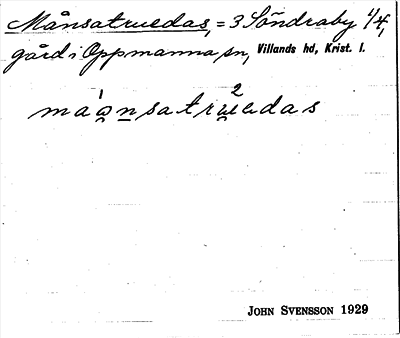 Månsatruedas, = 3 Söndraby 1/4,
gård i Oppmanna sn, Villands hd, Krist. l.
JOHN SVENSSON 1929